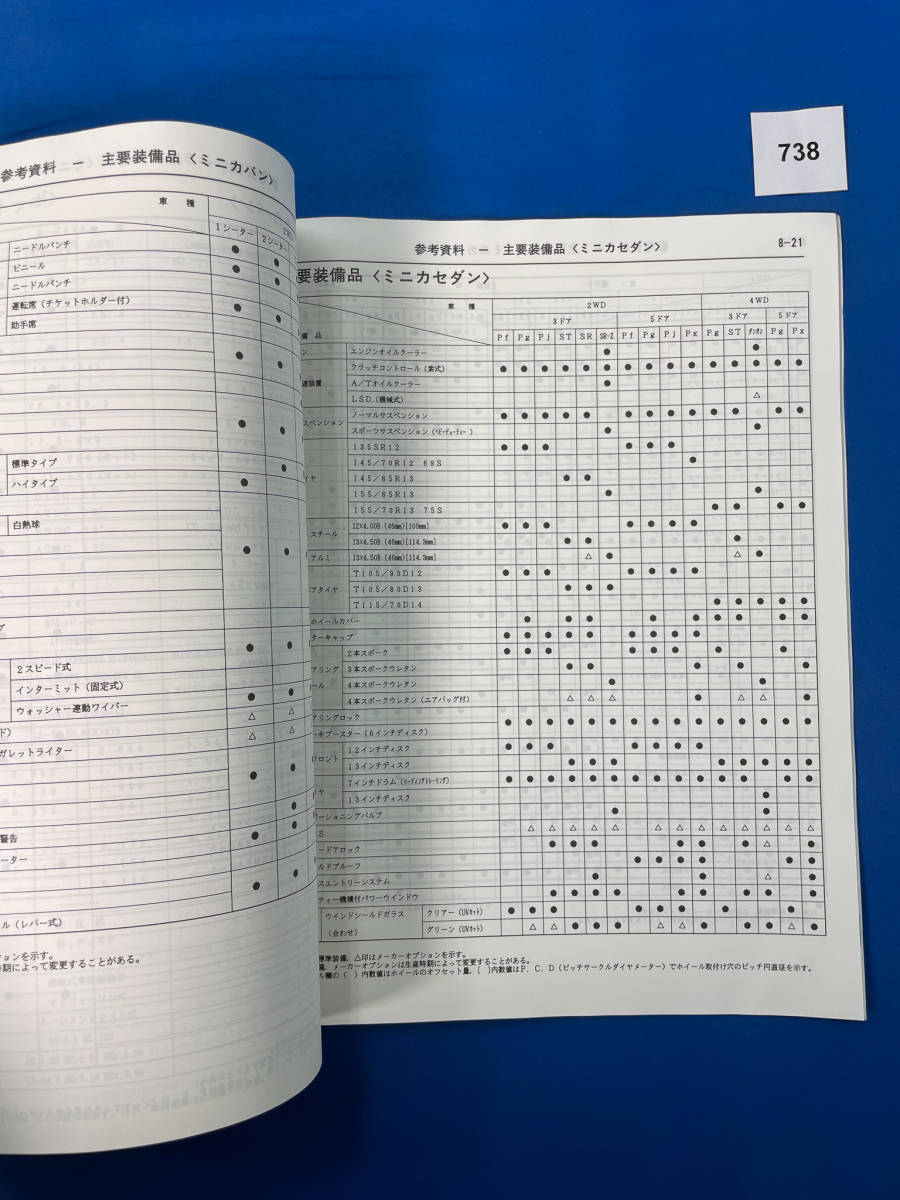 738
参考資料 ー 主要装備品〈ミニカバン〉
車 種
1シーター
2シーター
ニードルパンチ
ビニール
ニードルパンチ
運転席(チケットホルダー付)
助手席
標準タイプ
ハイタイプ
白熱球
2スピード式
インターミット(固定式)
ウォッシャー連動ワイパー
ド)
ガレットライター
警告
ーター
ル(レバー式)
ションを示す。
時期によって変更することがある。
参考資料 ー 主要装備品〈ミニカセダン〉
8-21
要装備品〈ミニカセダン〉
車 種
2WD
4WD
3ドア
5ドア
3ドア
5ドア
備 品
Pf Pg Pj ST SR SR-Z Pf Pg Pj Px Pg ST ダンガン Pg Px
ン
エンジンオイルクーラー ● ●
クラッチコントロール(索式) ● ● ● ● ● ● ● ● ● ● ● ● ● ● ●
達装置
A/Tオイルクーラー ●
LSD(機械式) △
スペンション
ノーマルサスペンション ● ● ● ● ● ● ● ● ● ● ● ● ●
スポーツサスペンション(ヘビーデューティー) ● ●
135SR12 ● ● ● ● ● ●
145/70R12 69S ●
イヤ
145/65R13 ● ●
155/65R13 ● ●
155/70R13 75S ● ● ● ●
スチール
12×4.00B (46mm)[100mm] ● ● ● ● ● ● ●
13×4.50B (46mm)[114.3mm] ● ● ●
アルミ
13×4.50B (46mm)[114.3mm] △ ● △ ●
T105/90D12 ● ● ● ● ● ● ●
アタイヤ
T105/80D13 ● ● ●
T115/70D14 ● ● ● ● ●
ホイールカバー
ターキャップ ● ● ● ● ● ● ● ● ●
2本スポーク
アリング
3本スポークウレタン
ール
4本スポークウレタン ● ●
4本スポークウレタン(エアバッグ付) △ △ △ ● △ △ ●
アリングロック
ーキブースター(6インチディスク)
フロント
12インチディスク ● ● ● ● ● ● ●
13インチディスク ● ● ● ● ● ● ● ●
7インチドラム(リーディングトレーリング)
ヤ
13インチディスク ●
ーショニングバルブ ● ●
S
ードアロック
ルドプルーフ
スエントリーシステム ● ● △ ●
ティー機構付パワーウインドウ
ウインドシールドガラス
(合わせ)
クリアー(UVカット)
グリーン(UVカット)
標準装備, △印はメーカーオプションを示す。
備, メーカーオプションは生産時期によって変更することがある。
ル欄の( )内数値はホイールのオフセット量, [ ]内数値はP.C.D(ピッチサークルダイヤメーター)でホイール取付け穴のピッチ円直径を示す。